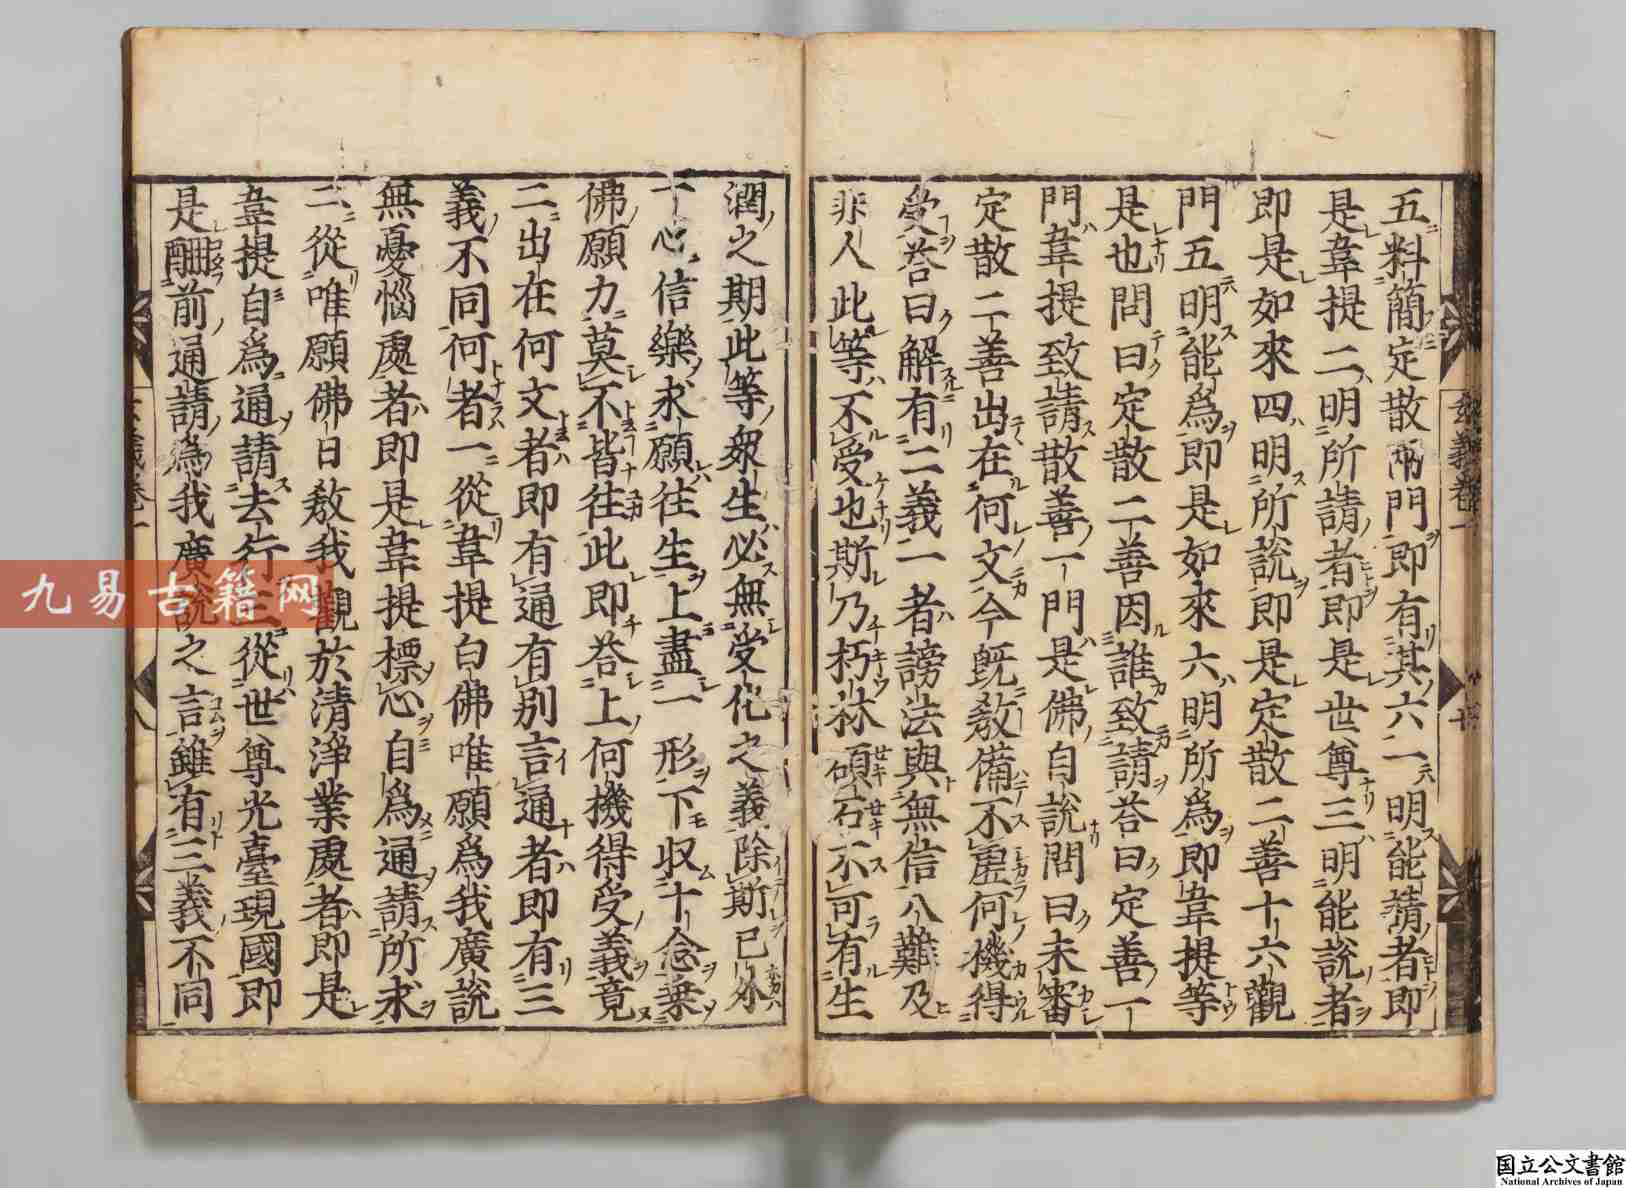 五料簡定散兩門即有其六一明能請者即
是韋提二明所請者即是世尊三明能說者
即是如來四明所說即是定散二善十六觀
門五明能為即是如來六明所為即韋提等
是也問曰定散二善因誰致請荅曰定善一
門韋提致請散善一門是佛自說問曰未審
定散二善出在何文今既教備不虛何機得
受荅曰解有二義一者謗法與無信八難及
非人此等不受也斯乃朽林碩石不可有生
潤之期此等衆生必無受化之義除斯已外
十心信樂求願往生上盡一形下収十念乗
佛願力莫不皆往此即荅上何機得受義竟
二出在何文者即有通有別言通者即有三
義不同何者一從韋提白佛唯願為我廣說
無憂惱處者即是韋提標心自為通請所求
二從唯願佛日教我觀於清淨業處者即是
韋提自為通請去行三從世尊光臺現國即
是酬前通請為我廣說之言雖有三義不同
玄義卷一
九易古籍网
国立公文書館
National Archives of Japan